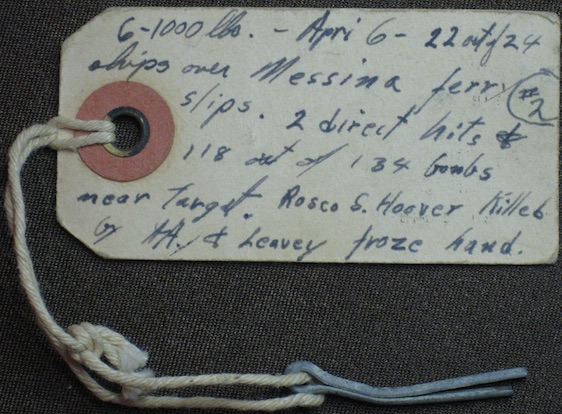 6-1000 lbs. - Apri 6 - 22 out of 24
ships over Messina ferry #2
slips. 2 direct hits &
118 out of 134 bombs
near Target. Rosco S. Hoover Killed
by AA. & Leavey froze hand.